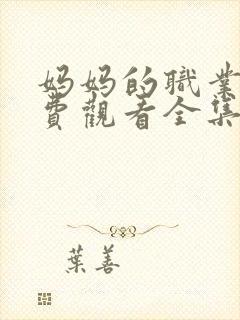 妈妈的職業
費觀看全集
葉善